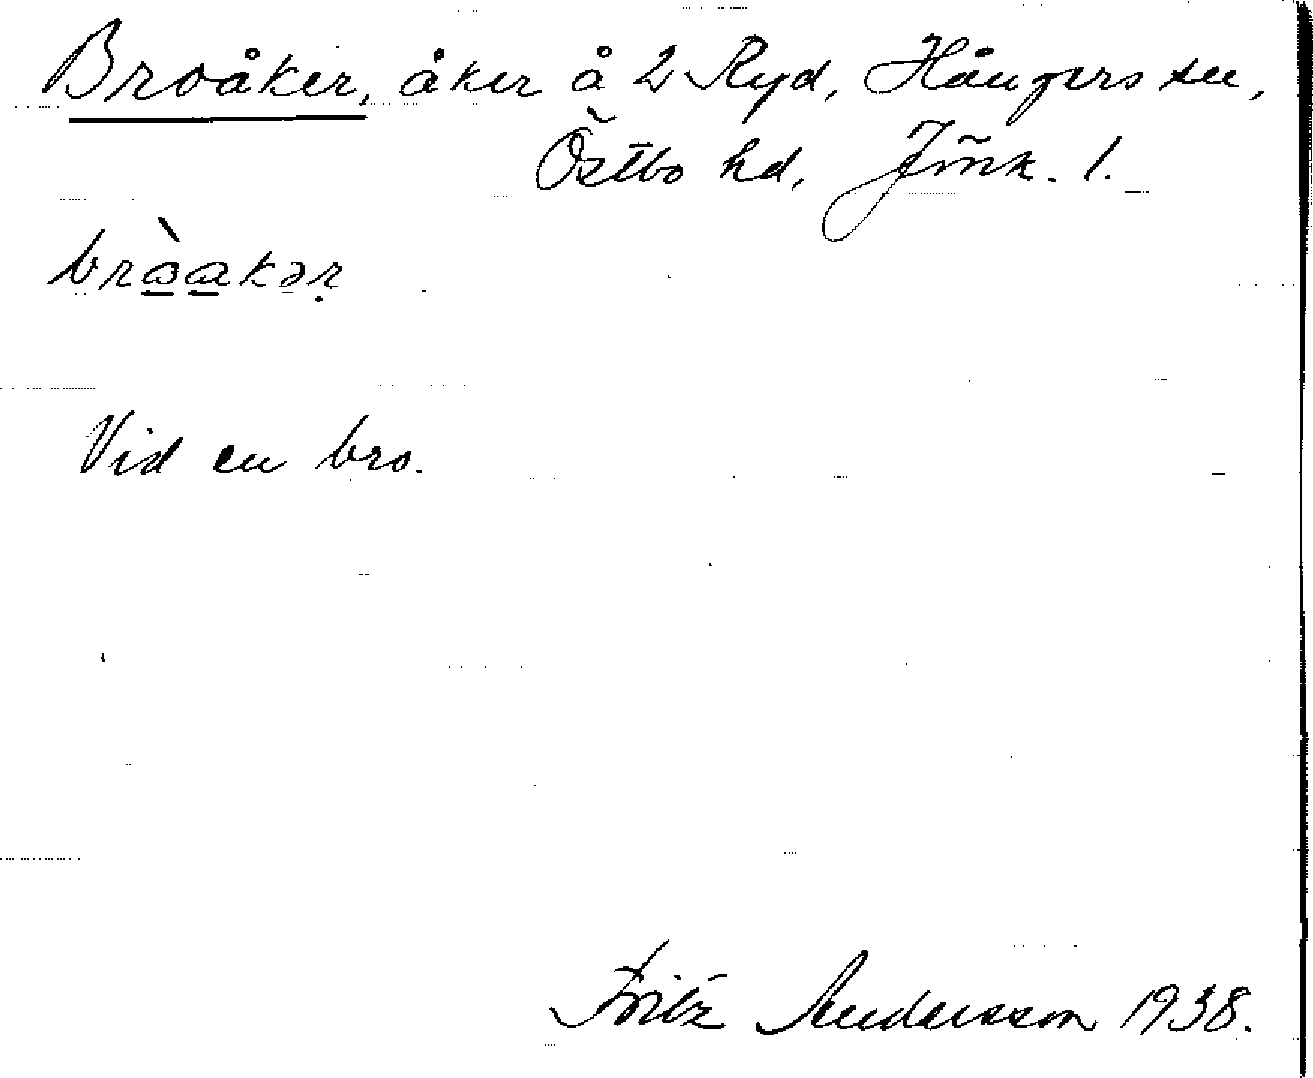 Broåker, åker å 2 Ryd, Hångers sn,
Östbo hd, Jönk. l.
bròakər
Vid en bro.
Fritz Andersson 1938.